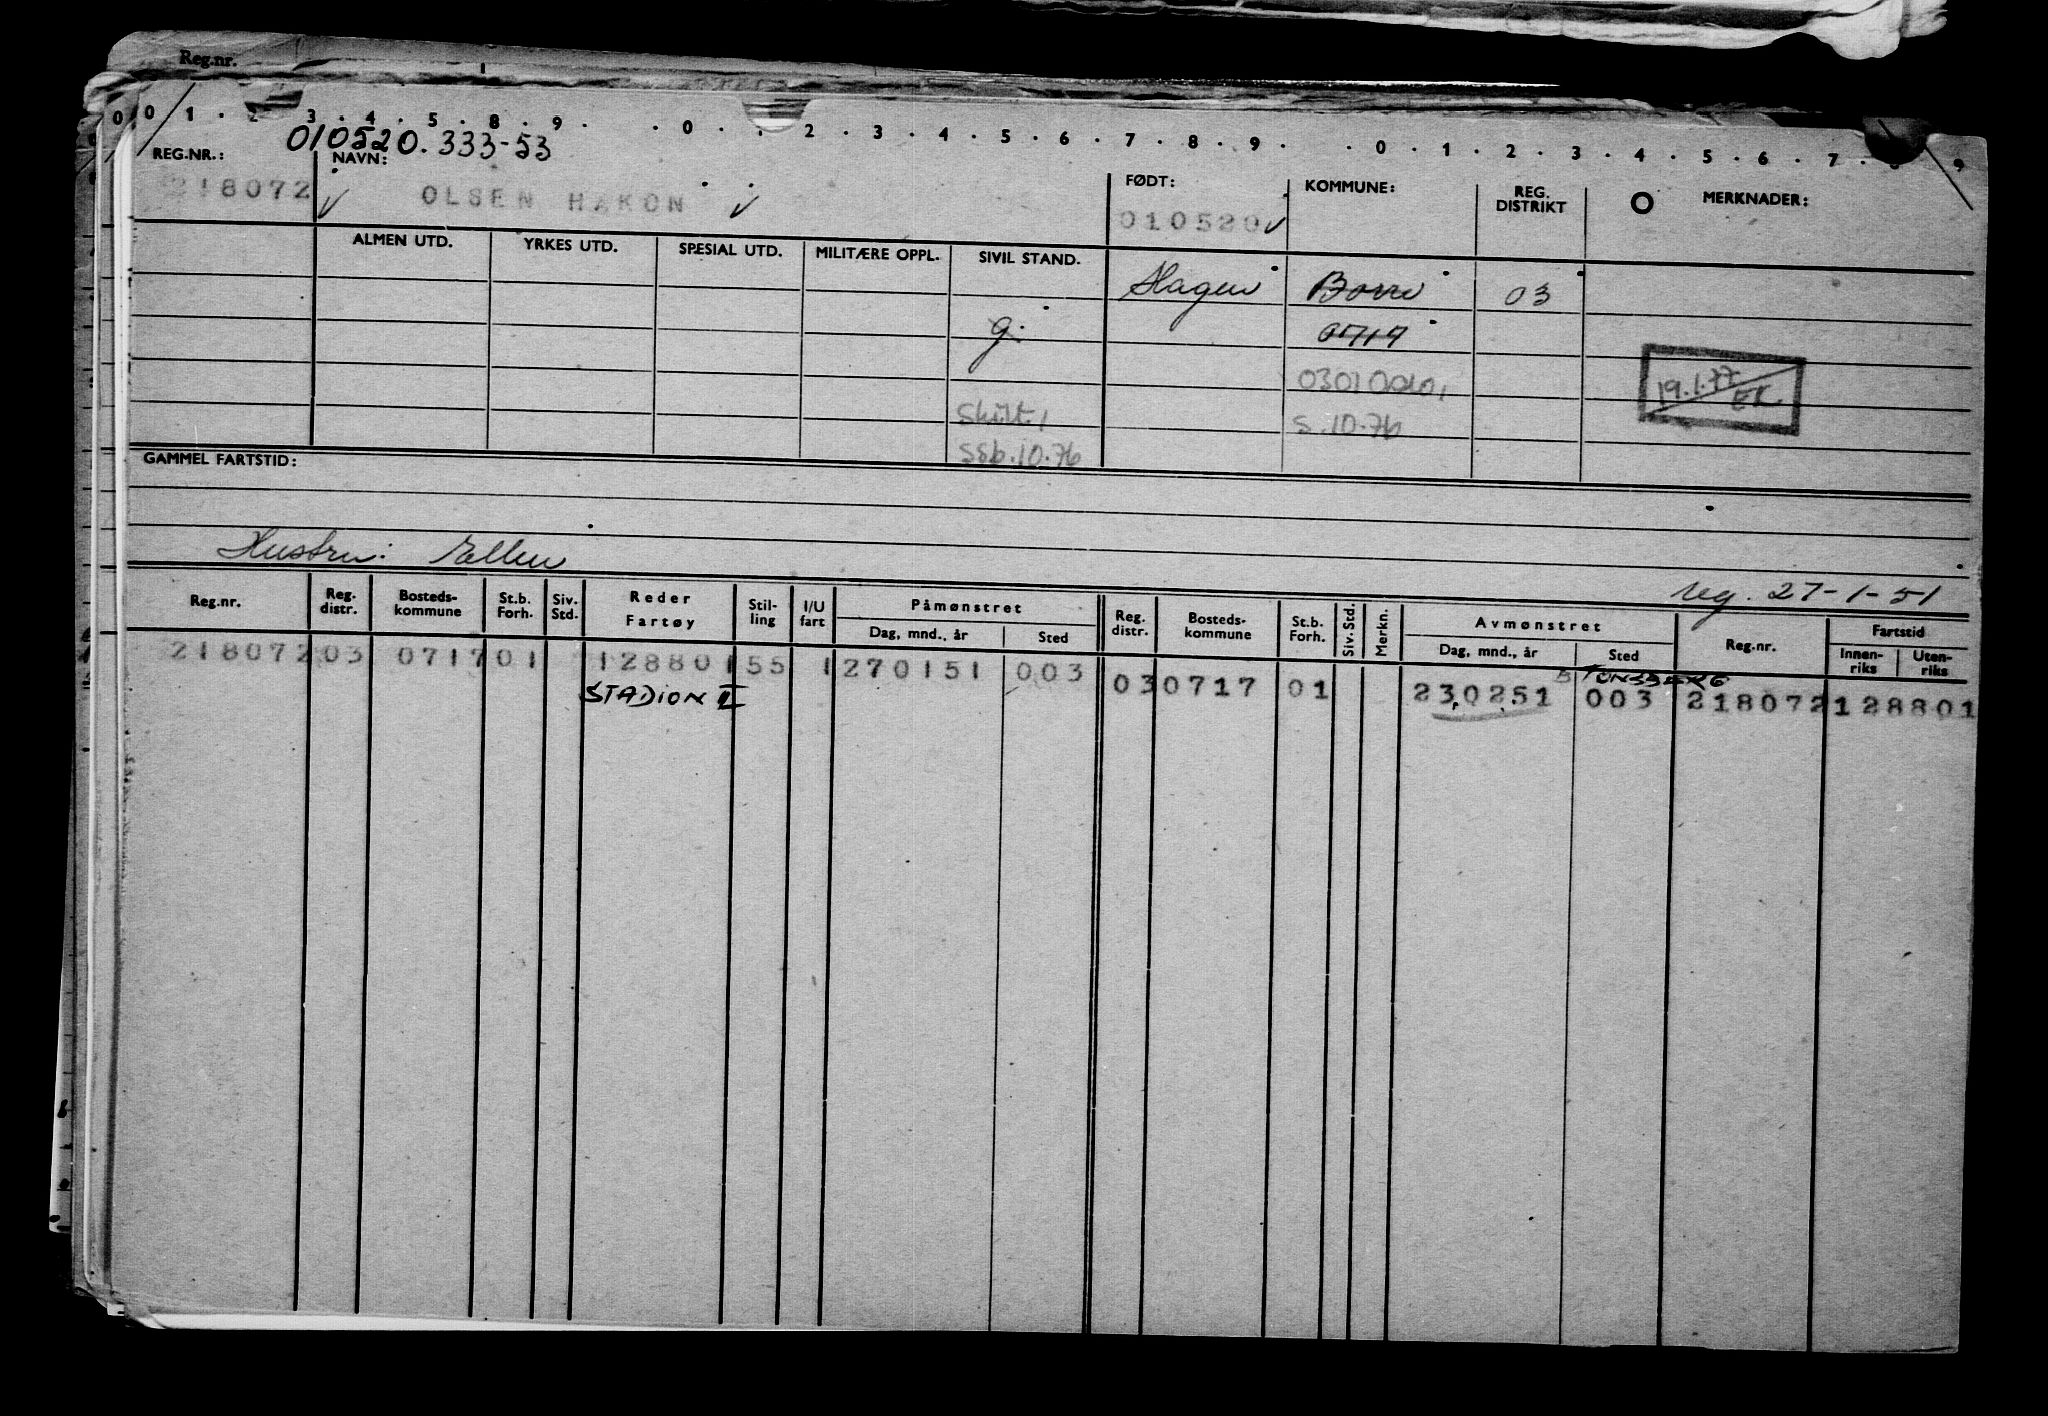 Reg.nr.
0 0 1 . 2 . 3 . 4 . 5 . 8 . 9 . . 0 . . 2 . 3 . 4 . 5 . 6 . 7 . 8 . 9 . . 0 . 1 . 2 . 3 . 4 . 5 . 6 . 7 . 8 . 9
010520.333-53
REG.NR.: NAVN: FØDT: KOMMUNE: REG. DISTRIKT O MERKNADER:
218072 OLSEN HAKON 010520
ALMEN UTD. YRKES UTD. SPESIAL UTD. MILITÆRE OPPL. SIVIL STAND.
Hagen Borre 03
g. 0717
0301 Oslo,
19.1.77 EK.
Skilt,
S.10.76
SSb.10.76
GAMMEL FARTSTID:
Hustru: Ellen
reg. 27-1-51
Reg.nr. Reg. distr. Bosteds-kommune St.b. Forh. Siv. Std. Reder Fartøy Stil-ling I/U fart Påmønstret Dag, mnd., år Sted Reg. distr. Bosteds-kommune St.b. Forh. Siv. Std. Merkn. Avmønstret Dag, mnd., år Sted Reg.nr. Fartstid Innen-riks Uten-riks
218072 03 0717 01 128801 55 1 270151 003 03 0717 01 230251 003 218072 128801
STADION II TØNSBERG